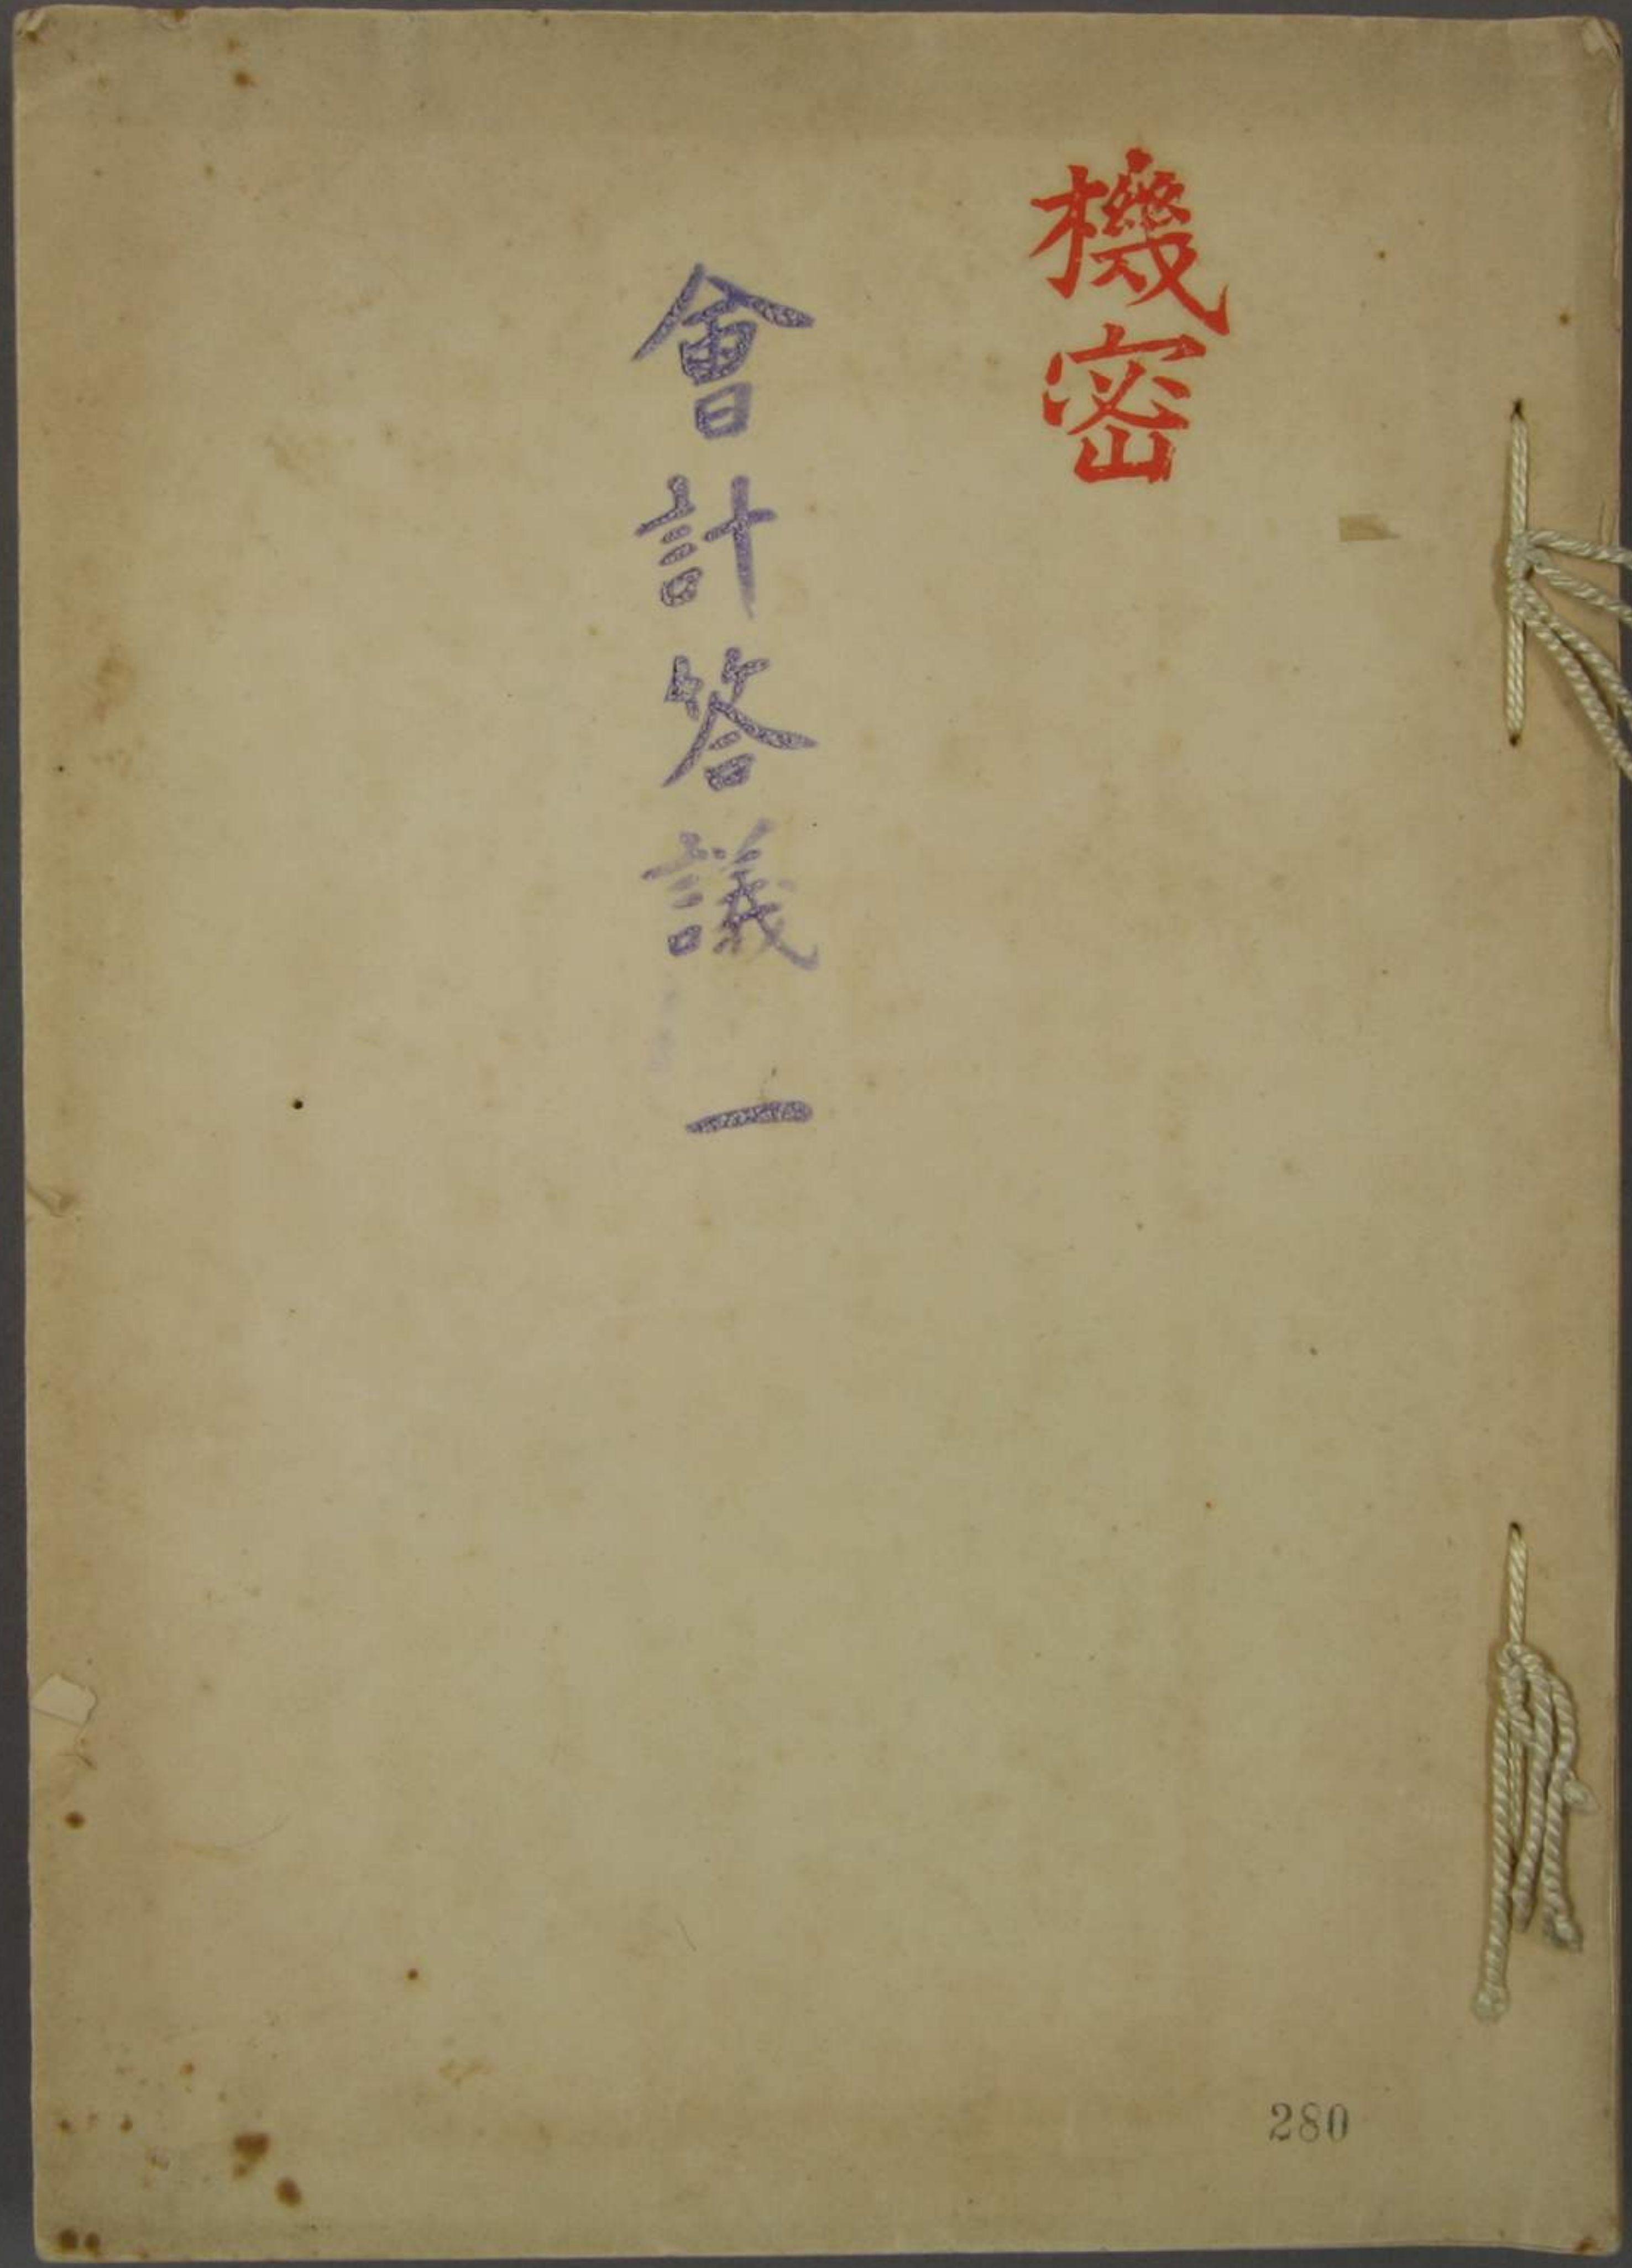 機密
會計答議 一
280